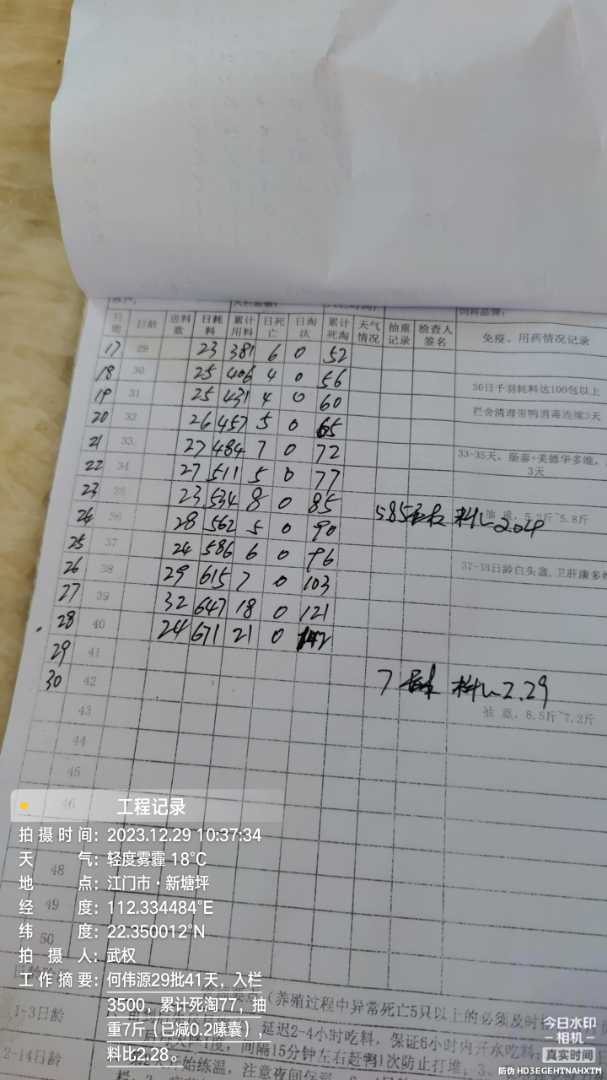 日期 日龄 进料数 日耗料 累计用料 日死亡 日淘汰 累计死淘 天气情况 抽重记录 检查人签名 免疫、用药情况记录
17 29 23 381 6 0 52
18 30 25 406 4 0 56 30日千羽耗料达100包以上
19 31 25 431 4 0 60 栏舍清毒带鸭消毒连续3天
20 32 26 457 5 0 65
21 33 27 484 7 0 72 33-35天,肠泰+美德华多维,3天
22 34 27 511 5 0 77
23 35 23 534 8 0 85
24 36 28 562 5 0 90 5.85 料比2.04 5.8斤
25 37 24 586 6 0 96
26 38 29 615 7 0 103 37-38日龄白头翁,卫肝康多
27 39 32 647 18 0 121
28 40 24 671 21 0 142
29 41
30 42 7 料比2.29
43 抽重,6.5斤~7.2斤
44
45
46
工程记录
拍摄时间:2023.12.29 10:37:34
天气:轻度雾霾 18℃
地点:江门市·新塘坪
经度:112.334484°E
纬度:22.350012°N
拍摄人:武权
工作摘要:何伟源29批41天,入栏
3500,累计死淘77,抽
重7斤(已减0.2嗉囊),
料比2.28。
48
49
50
(养殖过程中异常死亡5只以上的必须及时
1-3日龄 延迟2-4小时吃料,保证6小时内开水吃料
间隔15分钟左右赶鸭1次防止打堆
2-14日龄 始练温,注意夜间保温
今日水印
相机
真实时间
防伪 HD3EGEHTNAHXTM